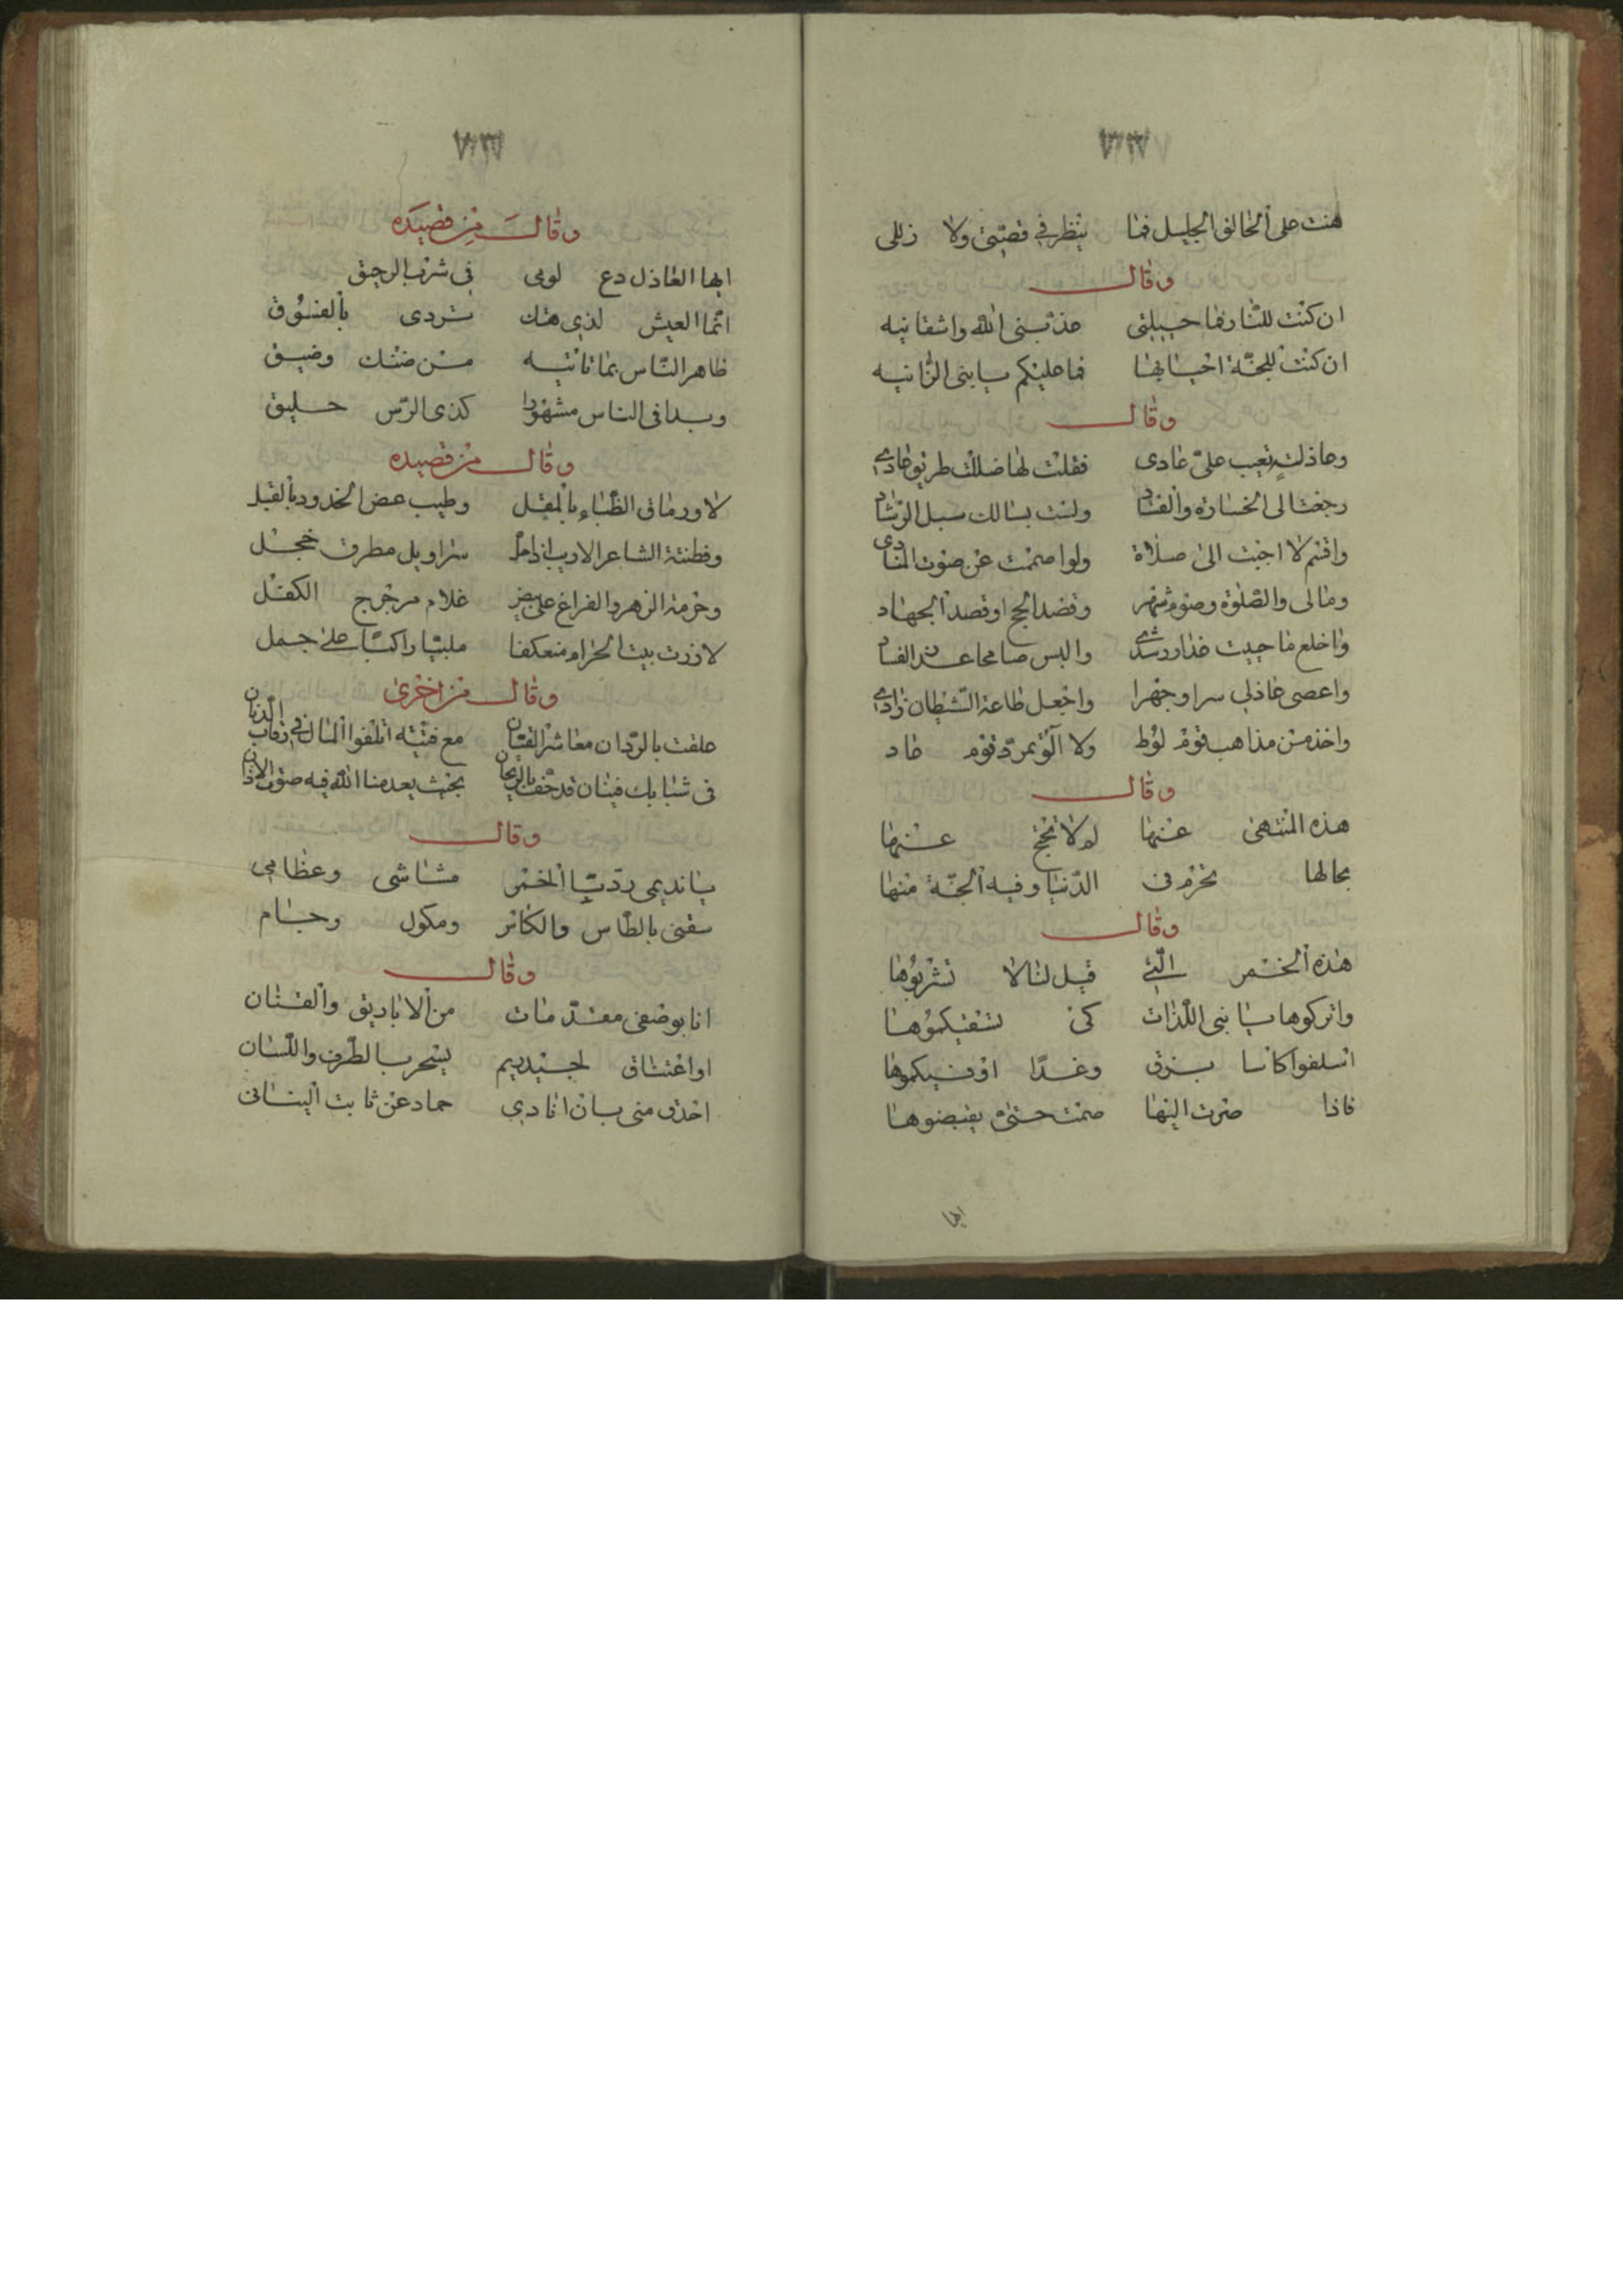 هنت على الخالق الجليل فما ينظر في قصتى ولا زللى
وقال
ان كنت للنار فما حيلتى عذبنى الله واشقانيه
ان كنت للجنة احيا بها فما عليكم يا بنى الزانيه
وقال
وعاذلة تعيب على عادى فقلت لها ضللت طريق عادى
رجعت الى الخسارة والفساد ولست بسالك سبل الرشاد
واقسم لا اجبت الى صلاة ولوا صمت عن صوت المنادى
ومالى والصلوة وصوم شهر وقصد الحج او قصد الجهاد
واخلع ما حييت عذار رشدى والبس صامحا الفساد
واعصى عاذلى سرا وجهرا واجعل طاعة الشيطان زادى
واخذ من مذاهب قوم لوط ولا آلو تمرد قوم عاد
وقال
هذه المنتهى عنها لم لا نحج عنها
بحالها تحرم فى الدنيا وفيه الجنة منها
وقال
هذه الخمر التى قيل لنا لا تشربوها
واتركوها يا بنى اللذات كى نسقيكموها
اسلفوا كاسا بزق وغدا اوفيكموها
فاذا صرت اليها صمت حتى يقبضوها
ايها
وقال من قصيده
ايها العاذل دع لومى فى شرب الرحيق
انما العيش لذى هتك تردى بالفسوق
ظاهر الناس بما تاتيه من ضنك وضيق
وبدا فى الناس مشهودا كذى الرس حليق
وقال من قصيده
لا ورماق الظباء بالمقل وطيب عض الخدود بالقبل
وفطنة الشاعر الاديب اذا سراويل مطرق خجل
وحرمة الزهر والفراغ على غلام مرجرج الكفل
لا زرت بيت الحرام معتكفا ملبيا راكبا على جمل
وقال من اخرى
علقت بالردان معاشر الفتيان مع فتية اتلفوا المال فى رقاب الدنان
فى شبابك فيتان قد حفت بالريحان بحيث يعدمنا الله فيه صوت الاذان
وقال
يا نديمى ردت الخمر مشاشى وعظامى
سقنى بالطاس والكاس ومكول وجام
وقال
انا بوصفى مقدمات من الاباريق والقنان
او اعتناق لجيد ريم يسحر بالطرف واللسان
احذق منى بان انادى حماد عن ثابت البنانى